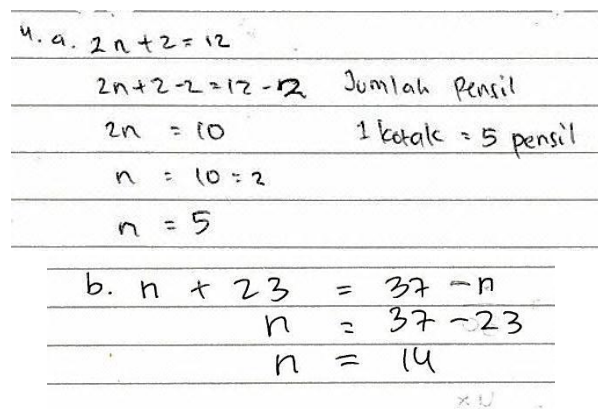 4. a. 2n + 2 = 12
2n + 2 - 2 = 12 - 2 Jumlah Pensil
2n = 10 1 kotak = 5 pensil
n = 10 : 2
n = 5
b. n + 23 = 37 - n
n = 37 - 23
n = 14